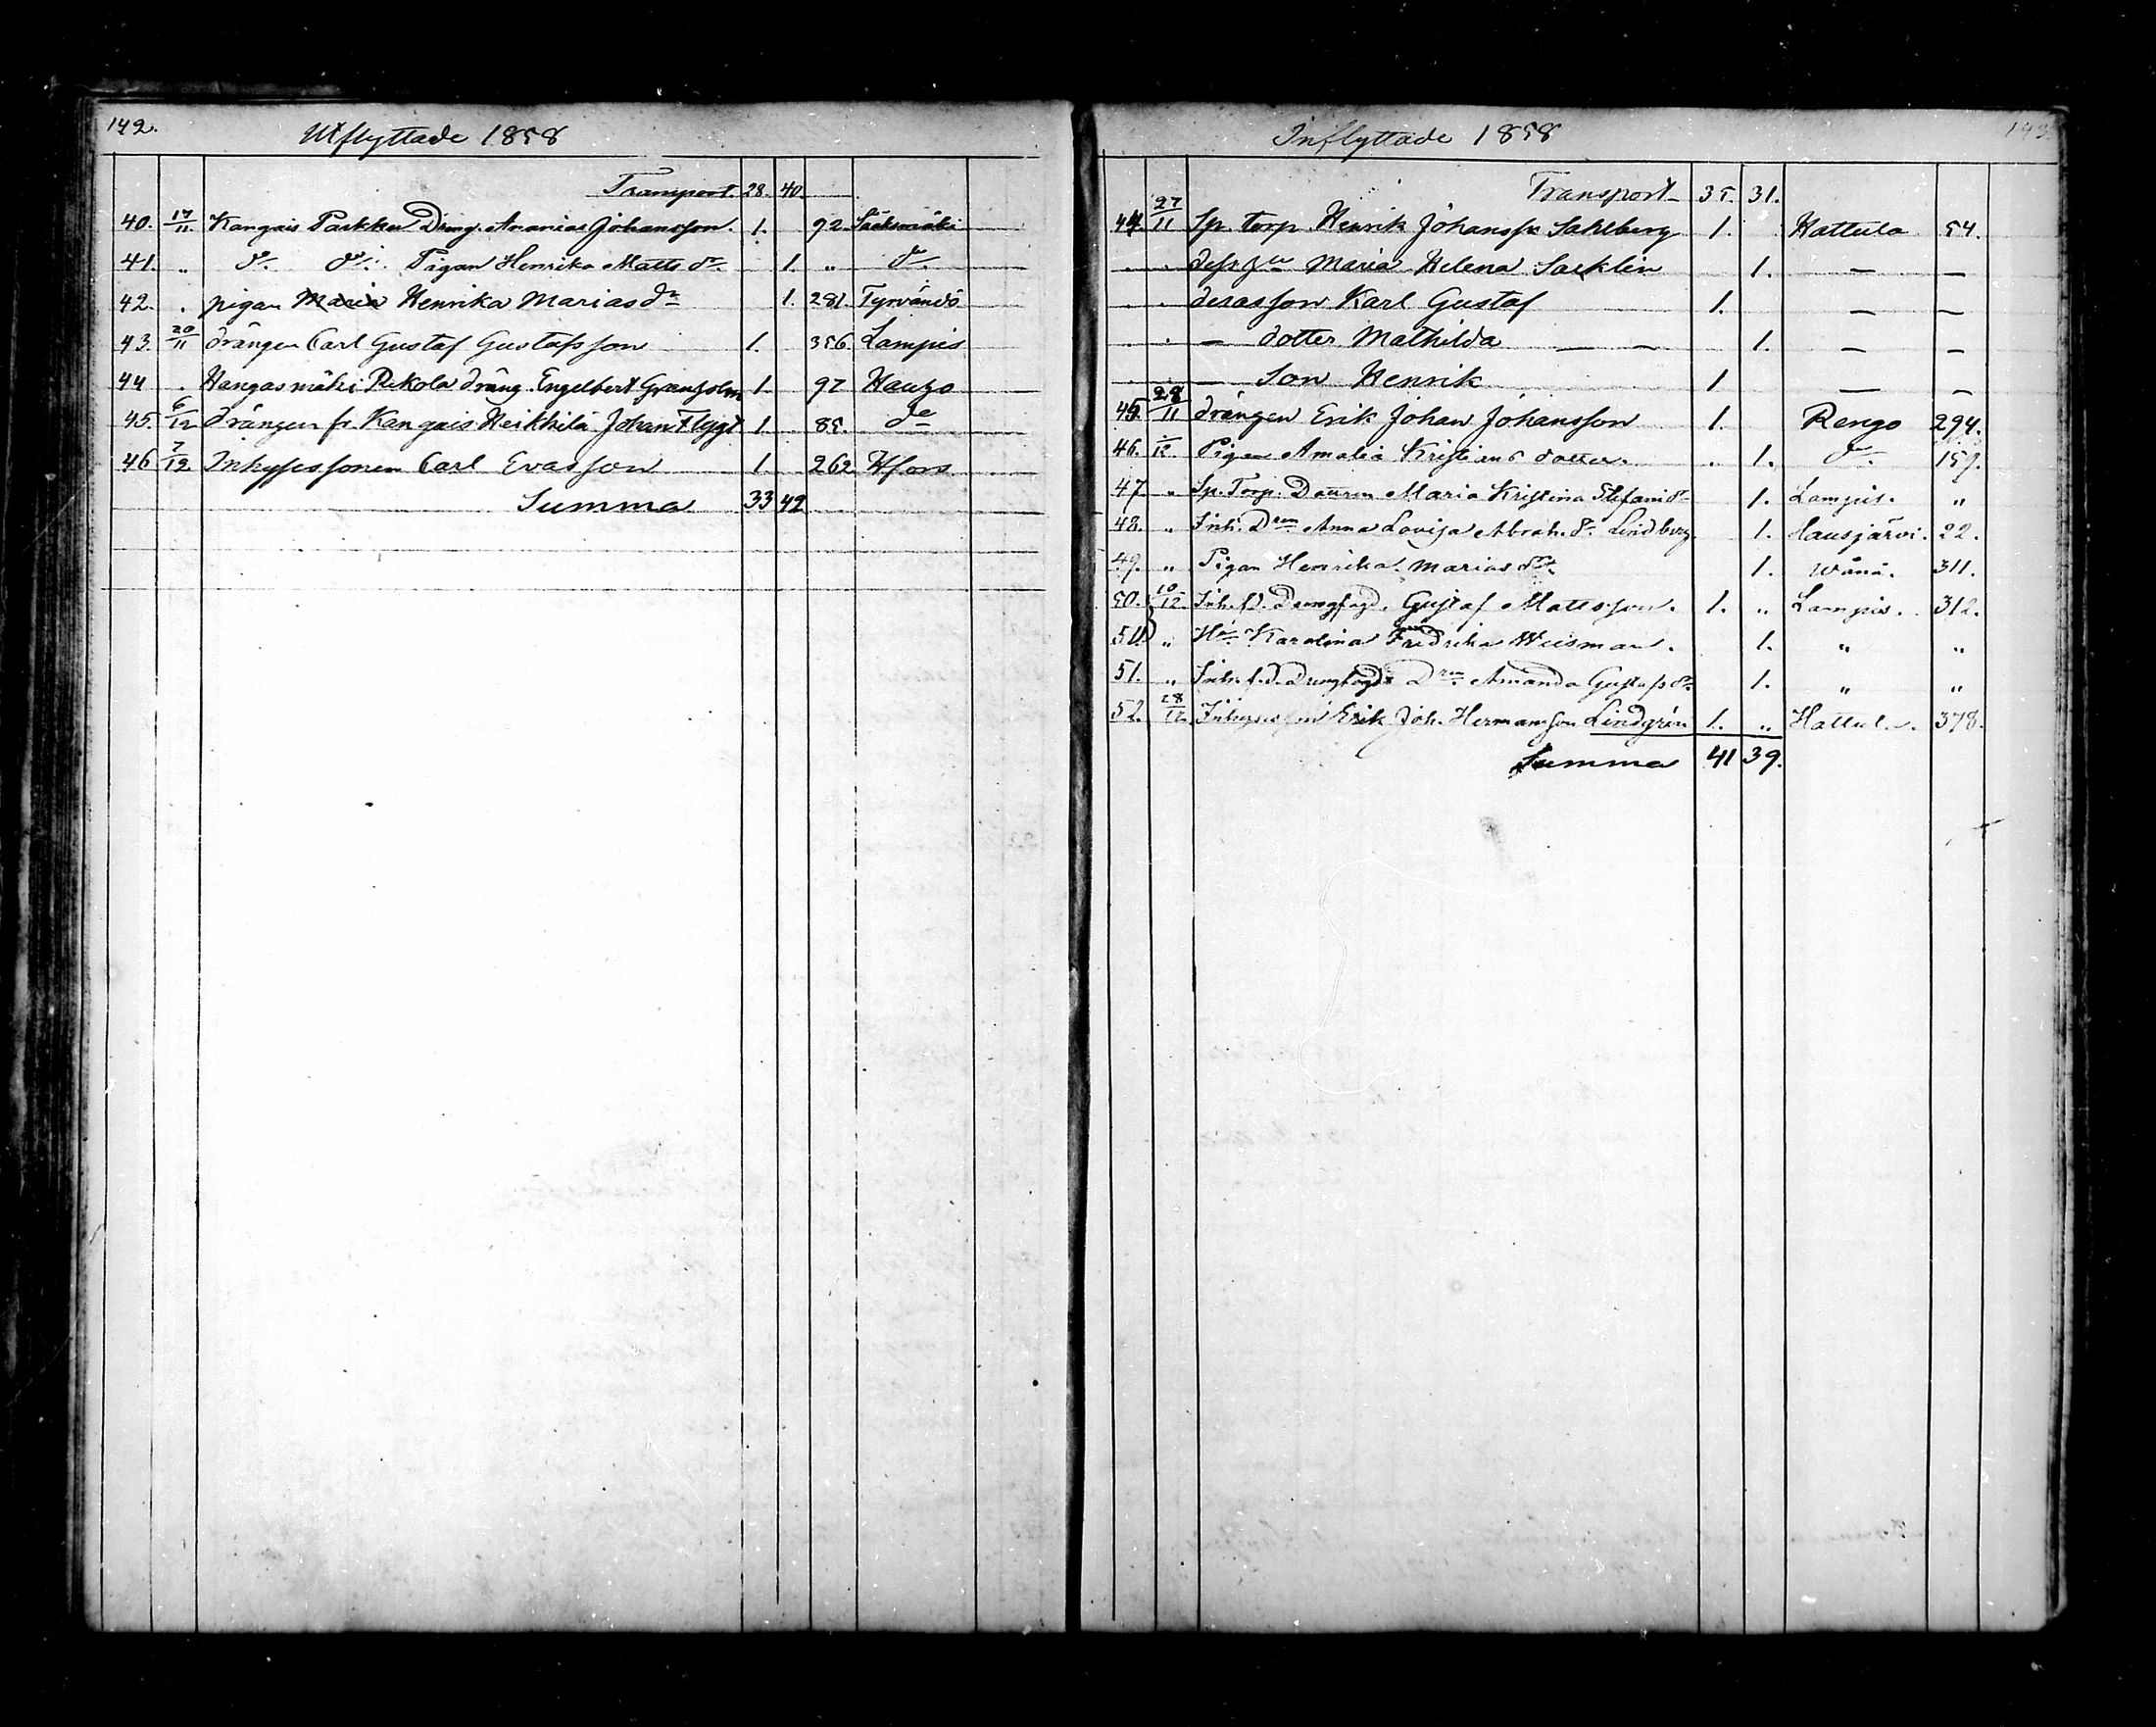 142.
Utflyttade 1858
Transport. 28. 40.
40. 17/11. Kangais Parkku Dräng. Ananias Johansson. 1. 92. Sääksmäki
41. „ do. do. Pigan Henrika Matts dr. 1. „ do.
42. . pigan Maria Henrika Marias dr 1. 281. Tyrvändö
43. 20/11 drängen Carl Gustaf Gustafsson 1. 356. Lampis
44 . Hangasmäki Pekola dräng. Engelbert Granholm 1. 97 Hauho
45. 6/12 drängen fr. Kangais Heikkilä Johan Flygt 1. 85. do
46 7/12. Inhysessonen Carl Evasson 1. 262 Hfors.
Summa 33 42
143
Inflyttade 1858
Transport 35. 31.
44. 27/11 Sp. torp. Henrik Johanss. Sahlberg 1. Hattula 54.
dess hu Maria Helena Sacklin 1. — —
deras son Karl Gustaf 1. — —
— dotter Mathilda — — 1. — —
— Son Henrik 1 — —
45. 28/11 drängen Erik Johan Johansson 1. Rengo 294.
46. 1/12 Pigan Amalia Kristians dotter. „ 1. do. 157.
47. „ Sp. Torp. Dottren Maria Kristina Stefansdr 1. Lampis. „
48. „ Inh. Dren Anna Lovisa Abrah. dr. Lindberg. 1. Hausjärvi. 22.
49. „ Pigan Henrika Marias dr. 1. Wånå. 311.
50. 10/12. Inh. f.d. Drengfogd. Gustaf Mattsson. 1. „ Lampis. 312.
51. „ Hu Karolina Fredrika Wiisman. 1. „ „
51. „ Inh. f.d. Drengfogds Dren. Amanda Gustafs dr. 1. „ „
52. 28/12. Inhyses son Erik Joh. Hermansson Lindgrén 1. „ Hattul. 378.
Summa 41 39.